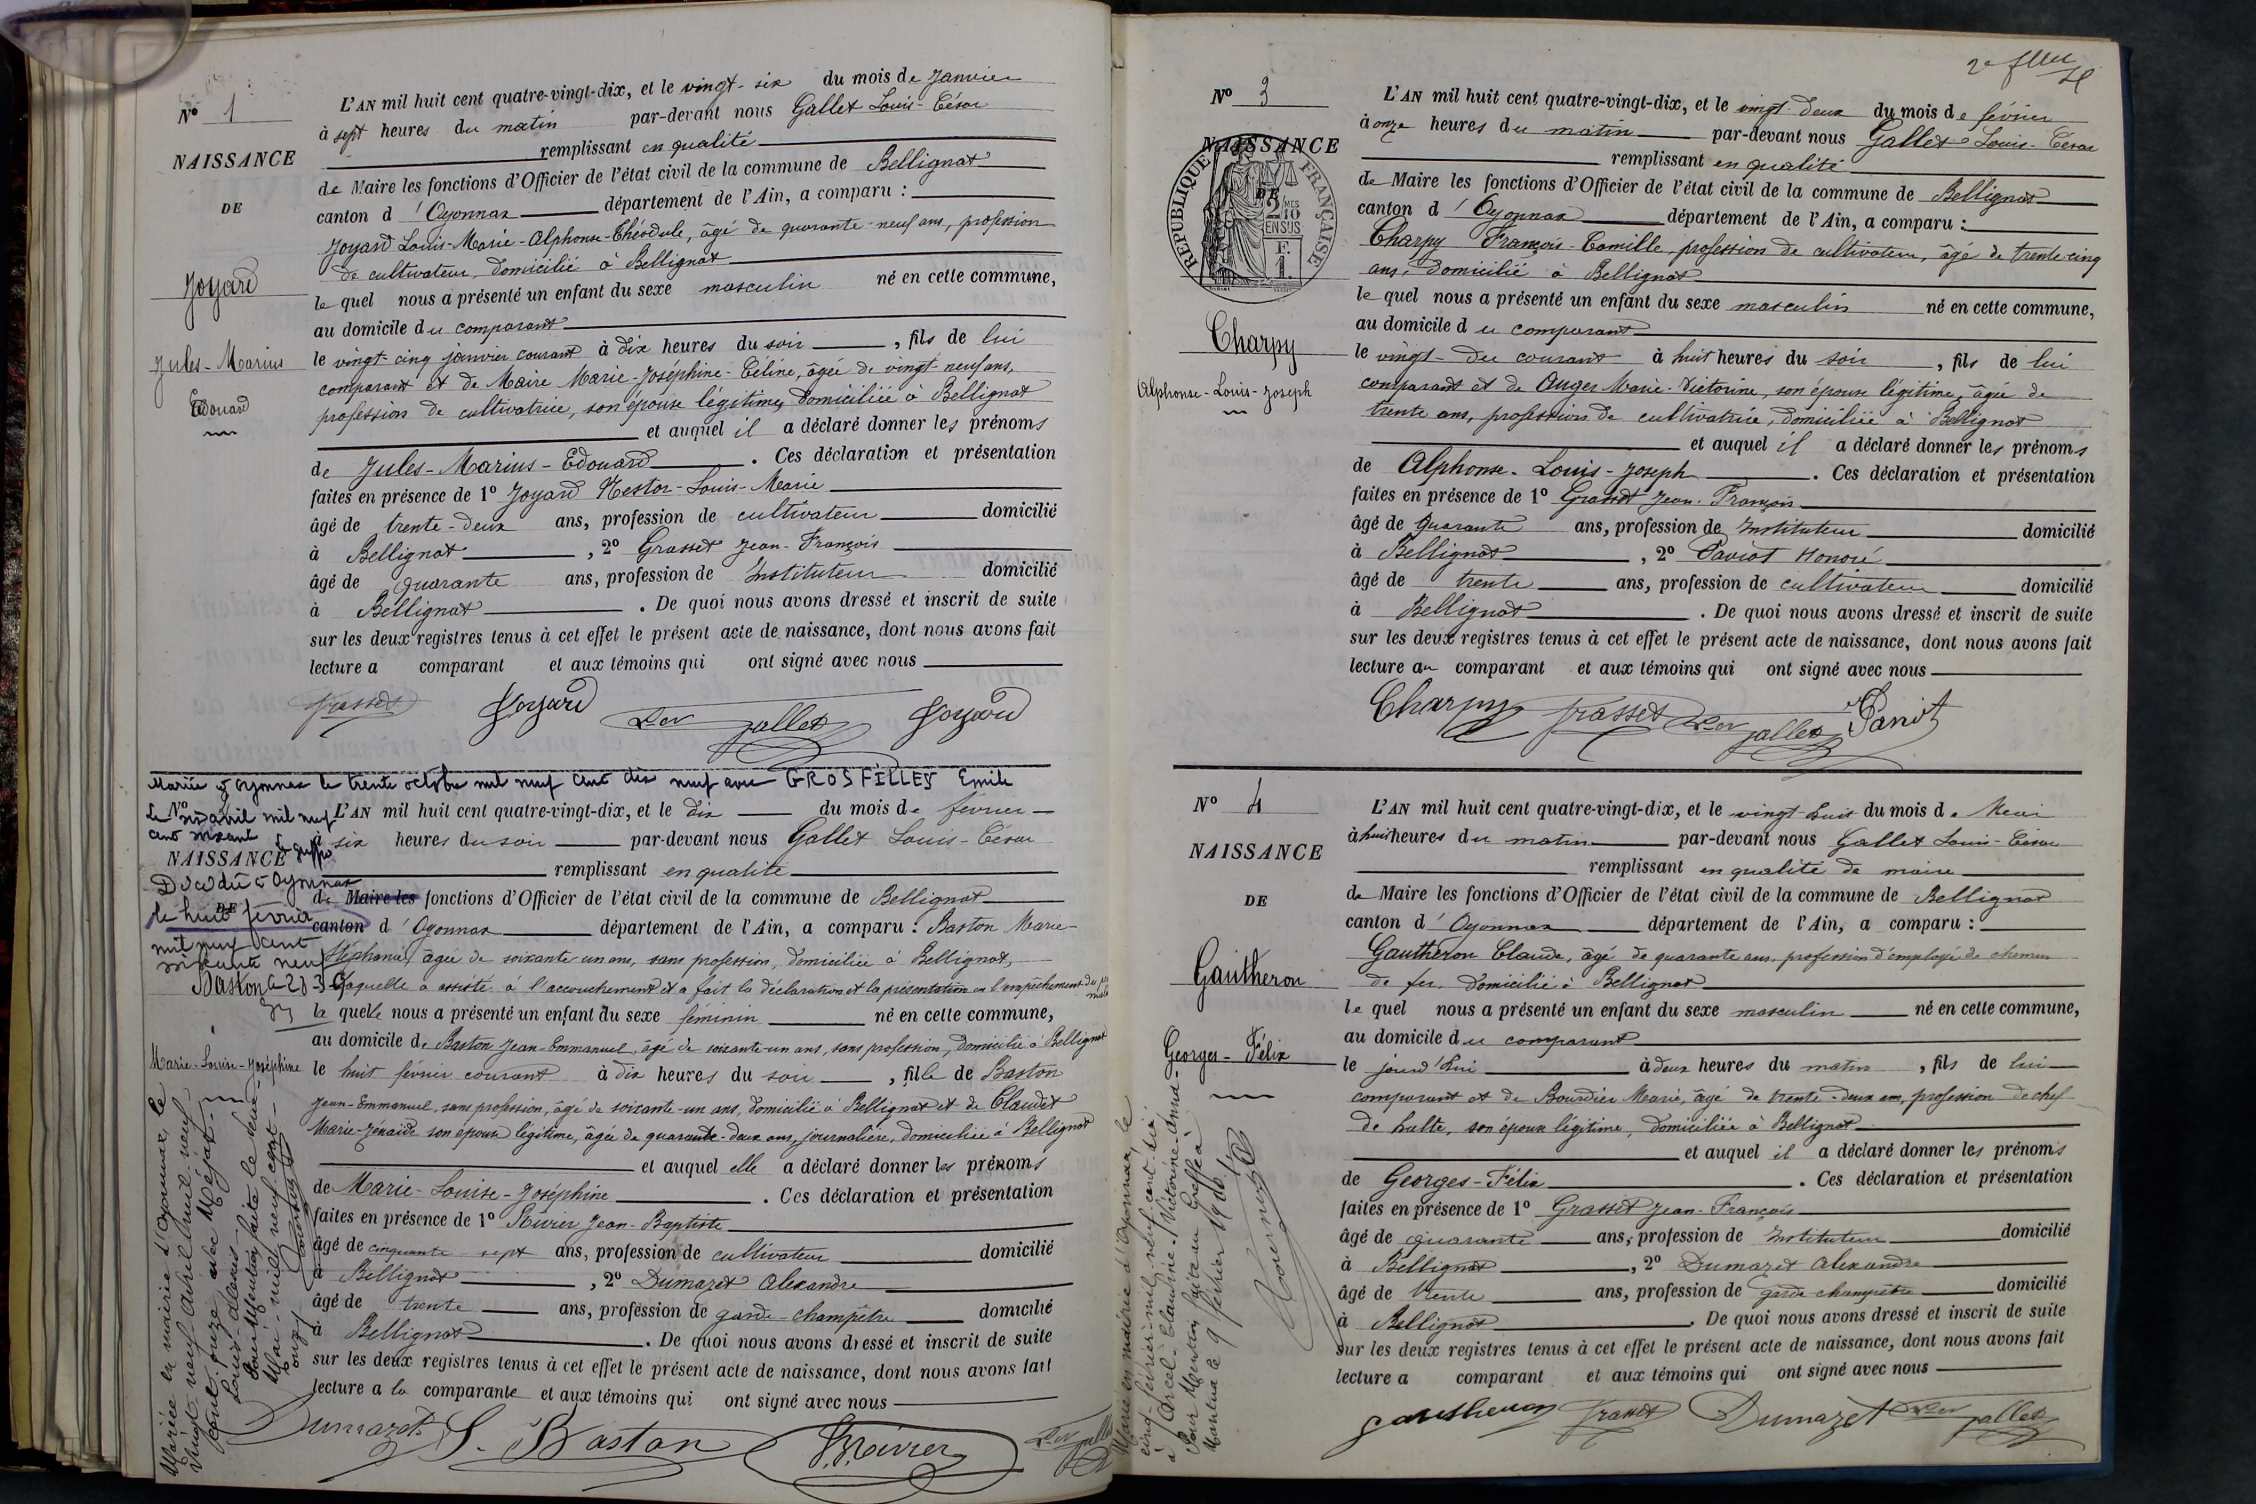 Nº 1
NAISSANCE
DE
Joyard
Jules-Marius
Edouard
L'AN mil huit cent quatre-vingt-dix, et le vingt-six du mois de Janvier
à sept heures du matin par-devant nous Gallet Louis-César
remplissant en qualité
de Maire les fonctions d'Officier de l'état civil de la commune de Bellignat
canton d'Oyonnax département de l'Ain, a comparu :
Joyard Louis-Marie-Alphonse-Théodule, âgé de quarante-neuf ans, profession
de cultivateur, domicilié à Bellignat
le quel nous a présenté un enfant du sexe masculin né en cette commune,
au domicile du comparant
le vingt-cinq janvier courant à dix heures du soir, fils de lui
comparant et de Maire Marie-Joséphine-Céline, âgée de vingt-neuf ans,
profession de cultivatrice, son épouse légitime, domiciliée à Bellignat
et auquel il a déclaré donner les prénoms
de Jules-Marius-Edouard. Ces déclaration et présentation
faites en présence de 1º Joyard Nestor-Louis-Marie
âgé de trente-deux ans, profession de cultivateur domicilié
à Bellignat, 2º Grasset Jean-François
âgé de quarante ans, profession de Instituteur domicilié
à Bellignat. De quoi nous avons dressé et inscrit de suite
sur les deux registres tenus à cet effet le présent acte de naissance, dont nous avons fait
lecture a comparant et aux témoins qui ont signé avec nous
Grasset Joyard Gallet Joyard
Mariée à Oyonnax le trente octobre mil neuf cent dix neuf avec GROSFILLEY Emile
Le avril mil neuf
cent soixante
Nº
NAISSANCE
DE
Décédée à Oyonnax
le huit février
mil neuf cent
soixante neuf
Baston
Marie-Louise-Joséphine
L'AN mil huit cent quatre-vingt-dix, et le dix du mois de février
à six heures du soir par-devant nous Gallet Louis-César
remplissant en qualité
de Maire les fonctions d'Officier de l'état civil de la commune de Bellignat
canton d'Oyonnax département de l'Ain, a comparu : Baston Marie
Stéphanie, âgée de soixante un ans, sans profession, domiciliée à Bellignat,
laquelle a assisté à l'accouchement et a fait la déclaration et la présentation en l'empêchement du
la quelle nous a présenté un enfant du sexe féminin né en cette commune,
au domicile de Baston Jean-Emmanuel, âgé de soixante-un ans, sans profession, domicilié à Bellignat
le huit février courant à dix heures du soir, fille de Baston
Jean-Emmanuel, sans profession, âgé de soixante-un ans, domicilié à Bellignat et de Claudet
Marie-Zénaïde son épouse légitime, âgée de quarante-deux ans, journalière, domiciliée à Bellignat
et auquel elle a déclaré donner les prénoms
de Marie-Louise-Joséphine. Ces déclaration et présentation
faites en présence de 1º Rivier Jean-Baptiste
âgé de cinquante-sept ans, profession de cultivateur domicilié
à Bellignat, 2º Dumazet Alexandre
âgé de trente ans, profession de garde-champêtre domicilié
à Bellignat. De quoi nous avons dressé et inscrit de suite
sur les deux registres tenus à cet effet le présent acte de naissance, dont nous avons fait
lecture a la comparante et aux témoins qui ont signé avec nous
Mariée en mairie d'Oyonnax, le
vingt-neuf Avril mil neuf
cent onze avec Méjat
Louis-Alexis
Pour Mention faite le
Mai mil neuf cent
onze
Dumazet S. Baston Rivier Gallet
2e
Nº 3
NAISSANCE
DE
RÉPUBLIQUE FRANÇAISE
2 MES
10
EN SUS
F.
1.
Charpy
Alphonse-Louis-Joseph
L'AN mil huit cent quatre-vingt-dix, et le vingt-deux du mois de février
à onze heures du matin par-devant nous Gallet Louis-César
remplissant en qualité
de Maire les fonctions d'Officier de l'état civil de la commune de Bellignat
canton d'Oyonnax département de l'Ain, a comparu :
Charpy François-Camille, profession de cultivateur, âgé de trente-cinq
ans, domicilié à Bellignat
le quel nous a présenté un enfant du sexe masculin né en cette commune,
au domicile du comparant
le vingt-du courant à huit heures du soir, fils de lui
comparant et de Auger Marie-Victorine, son épouse légitime, âgée de
trente ans, profession de cultivatrice, domiciliée à Bellignat
et auquel il a déclaré donner les prénoms
de Alphonse-Louis-Joseph. Ces déclaration et présentation
faites en présence de 1º Grasset Jean-François
âgé de quarante ans, profession de Instituteur domicilié
à Bellignat, 2º Honoré
âgé de trente ans, profession de cultivateur domicilié
à Bellignat. De quoi nous avons dressé et inscrit de suite
sur les deux registres tenus à cet effet le présent acte de naissance, dont nous avons fait
lecture au comparant et aux témoins qui ont signé avec nous
Charpy Grasset Gallet
Nº 4
NAISSANCE
DE
Gautheron
Georges-Félix
L'AN mil huit cent quatre-vingt-dix, et le vingt-huit du mois de
à huit heures du matin par-devant nous Gallet Louis-César
remplissant en qualité de maire
de Maire les fonctions d'Officier de l'état civil de la commune de Bellignat
canton d'Oyonnax département de l'Ain, a comparu :
Gautheron Claude, âgé de quarante ans, profession d'employé de chemin
de fer, domicilié à Bellignat
le quel nous a présenté un enfant du sexe masculin né en cette commune,
au domicile du comparant
le jourd'hui à deux heures du matin, fils de lui
comparant et de Bourdier Marie, âgée de trente-deux ans, profession de chef
de halte, son épouse légitime, domiciliée à Bellignat
et auquel il a déclaré donner les prénoms
de Georges-Félix. Ces déclaration et présentation
faites en présence de 1º Grasset Jean-François
âgé de quarante ans, profession de Instituteur domicilié
à Bellignat, 2º Dumazet Alexandre
âgé de trente ans, profession de garde champêtre domicilié
à Bellignat. De quoi nous avons dressé et inscrit de suite
sur les deux registres tenus à cet effet le présent acte de naissance, dont nous avons fait
lecture a comparant et aux témoins qui ont signé avec nous
Marié en mairie d'Oyonnax, le
cinq février mil neuf cent
à Arcel Claudine-Victorine
Pour Mention faite au Greffe à
Nantua le 9 février
Gautheron Grasset Dumazet Gallet